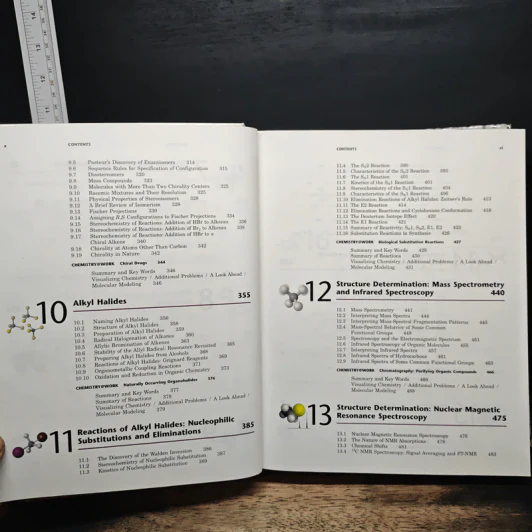 14
13
12
11
x
CONTENTS
9.5 Pasteur's Discovery of Enantiomers 314
9.6 Sequence Rules for Specification of Configuration 315
9.7 Diastereomers 320
9.8 Meso Compounds 322
9.9 Molecules with More Than Two Chirality Centers 325
9.10 Racemic Mixtures and Their Resolution 325
9.11 Physical Properties of Stereoisomers 328
9.12 A Brief Review of Isomerism 328
9.13 Fischer Projections 330
9.14 Assigning R,S Configurations to Fischer Projections 334
9.15 Stereochemistry of Reactions: Addition of HBr to Alkenes 336
9.16 Stereochemistry of Reactions: Addition of Br₂ to Alkenes 338
9.17 Stereochemistry of Reactions: Addition of HBr to a
Chiral Alkene 340
9.18 Chirality at Atoms Other Than Carbon 342
9.19 Chirality in Nature 342
CHEMISTRY@WORK Chiral Drugs 344
Summary and Key Words 346
Visualizing Chemistry / Additional Problems / A Look Ahead /
Molecular Modeling 346
10 Alkyl Halides 355
10.1 Naming Alkyl Halides 356
10.2 Structure of Alkyl Halides 358
10.3 Preparation of Alkyl Halides 359
10.4 Radical Halogenation of Alkanes 360
10.5 Allylic Bromination of Alkenes 363
10.6 Stability of the Allyl Radical: Resonance Revisited 365
10.7 Preparing Alkyl Halides from Alcohols 368
10.8 Reactions of Alkyl Halides: Grignard Reagents 369
10.9 Organometallic Coupling Reactions 371
10.10 Oxidation and Reduction in Organic Chemistry 373
CHEMISTRY@WORK Naturally Occurring Organohalides 376
Summary and Key Words 377
Summary of Reactions 378
Visualizing Chemistry / Additional Problems / A Look Ahead /
Molecular Modeling 379
11 Reactions of Alkyl Halides: Nucleophilic
Substitutions and Eliminations 385
11.1 The Discovery of the Walden Inversion 386
11.2 Stereochemistry of Nucleophilic Substitution 387
11.3 Kinetics of Nucleophilic Substitution 389
CONTENTS xi
11.4 The SN2 Reaction 390
11.5 Characteristics of the SN2 Reaction 393
11.6 The SN1 Reaction 400
11.7 Kinetics of the SN1 Reaction 401
11.8 Stereochemistry of the SN1 Reaction 404
11.9 Characteristics of the SN1 Reaction 406
11.10 Elimination Reactions of Alkyl Halides: Zaitsev's Rule 412
11.11 The E2 Reaction 414
11.12 Elimination Reactions and Cyclohexane Conformation 418
11.13 The Deuterium Isotope Effect 420
11.14 The E1 Reaction 421
11.15 Summary of Reactivity: SN1, SN2, E1, E2
11.16 Substitution Reactions in Synthesis 425
CHEMISTRY@WORK Biological Substitution Reactions 427
Summary and Key Words 429
Summary of Reactions 430
Visualizing Chemistry / Additional Problems / A Look Ahead /
Molecular Modeling 431
12 Structure Determination: Mass Spectrometry
and Infrared Spectroscopy 440
12.1 Mass Spectrometry 441
12.2 Interpreting Mass Spectra 444
12.3 Interpreting Mass Spectral Fragmentation Patterns 445
12.4 Mass-Spectral Behavior of Some Common
Functional Groups 449
12.5 Spectroscopy and the Electromagnetic Spectrum 451
12.6 Infrared Spectroscopy of Organic Molecules 455
12.7 Interpreting Infrared Spectra 457
12.8 Infrared Spectra of Hydrocarbons 461
12.9 Infrared Spectra of Some Common Functional Groups 463
CHEMISTRY@WORK Chromatography: Purifying Organic Compounds 466
Summary and Key Words 468
Visualizing Chemistry / Additional Problems / A Look Ahead /
Molecular Modeling 469
13 Structure Determination: Nuclear Magnetic
Resonance Spectroscopy 475
13.1 Nuclear Magnetic Resonance Spectroscopy 476
13.2 The Nature of NMR Absorptions 478
13.3 Chemical Shifts 481
13.4 ¹³C NMR Spectroscopy: Signal Averaging and FT-NMR 483